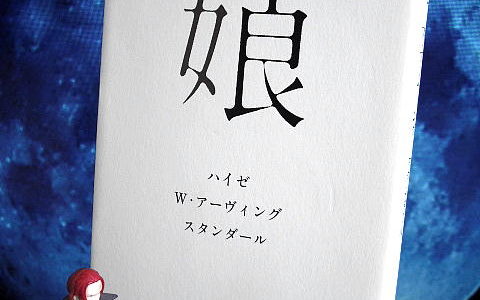 娘
ハイゼ
W・アーヴィング
スタンダール